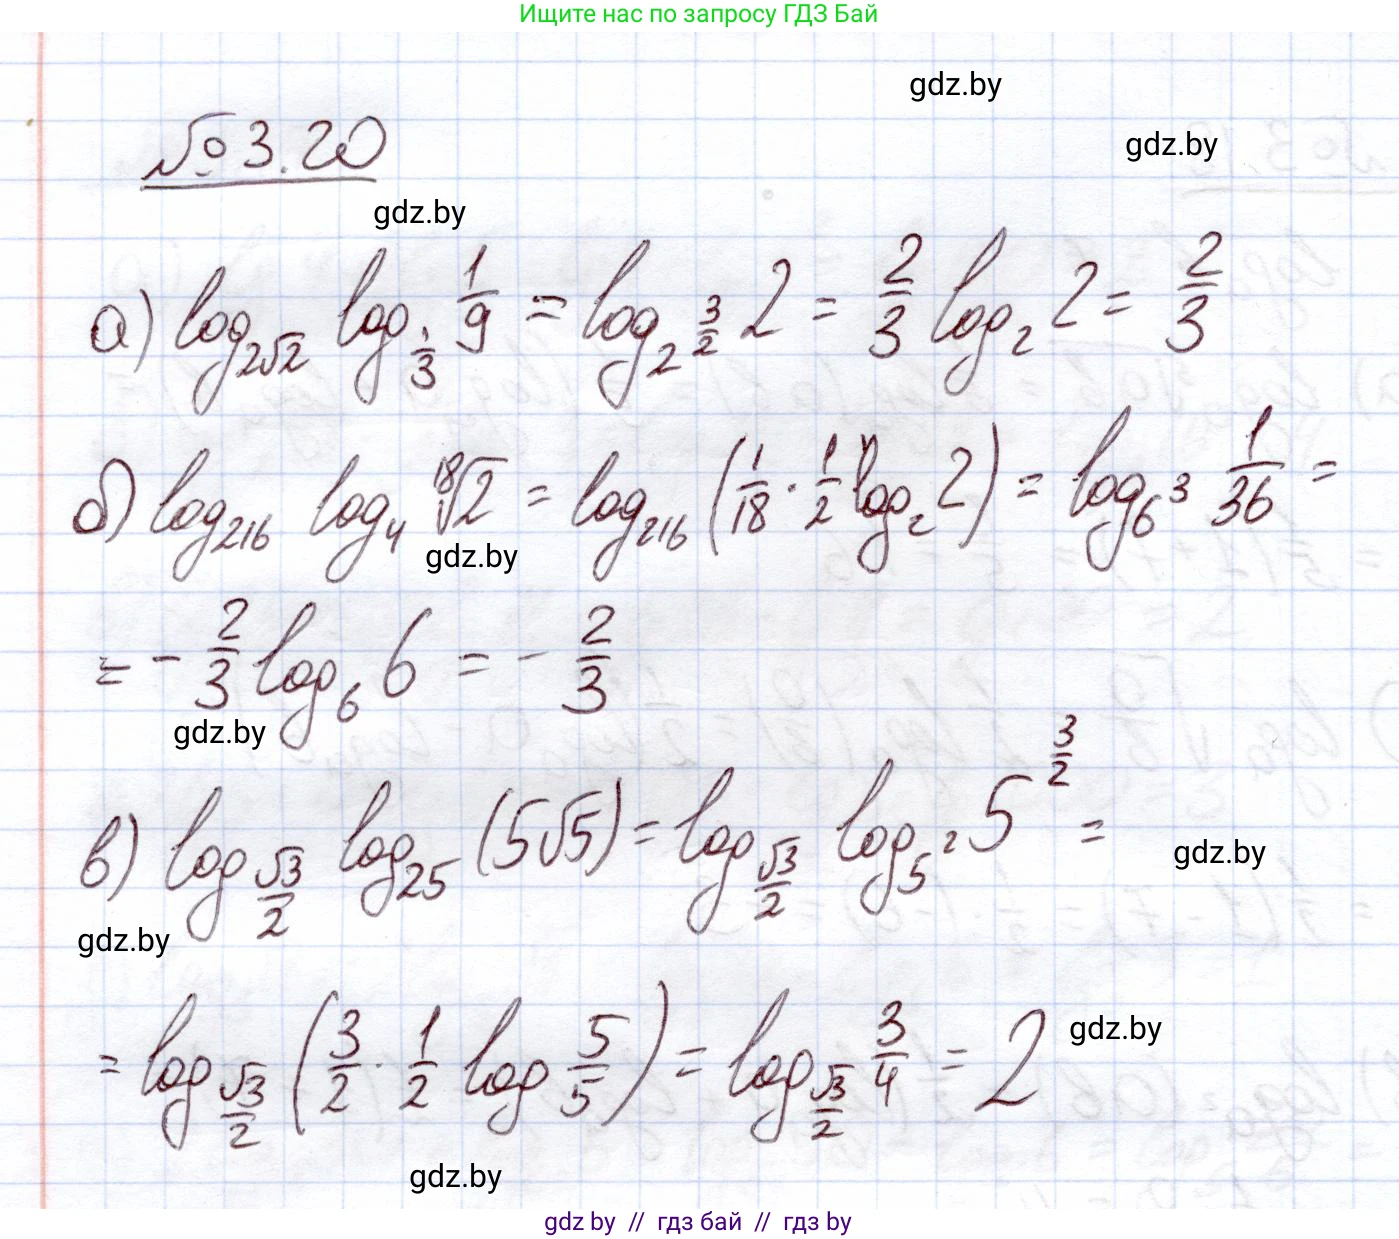 Ищите нас по запросу ГДЗ Бай
gdz.by
gdz.by
№ 3.20
gdz.by
а) log_{2√2} log_{1/3} 1/9 = log_{2^{3/2}} 2 = 2/3 log_2 2 = 2/3
б) log_{216} log_4 ¹⁸√2 = log_{216} (1/18 · 1/2 log_2 2) = log_{6^3} 1/36 =
gdz.by
= - 2/3 log_6 6 = - 2/3
gdz.by
в) log_{√3/2} log_{25} (5√5) = log_{√3/2} log_{5^2} 5^{3/2} =
gdz.by
gdz.by
= log_{√3/2} (3/2 · 1/2 log 5/5) = log_{√3/2} 3/4 = 2
gdz.by
gdz.by
gdz by // гдз бай // гдз by